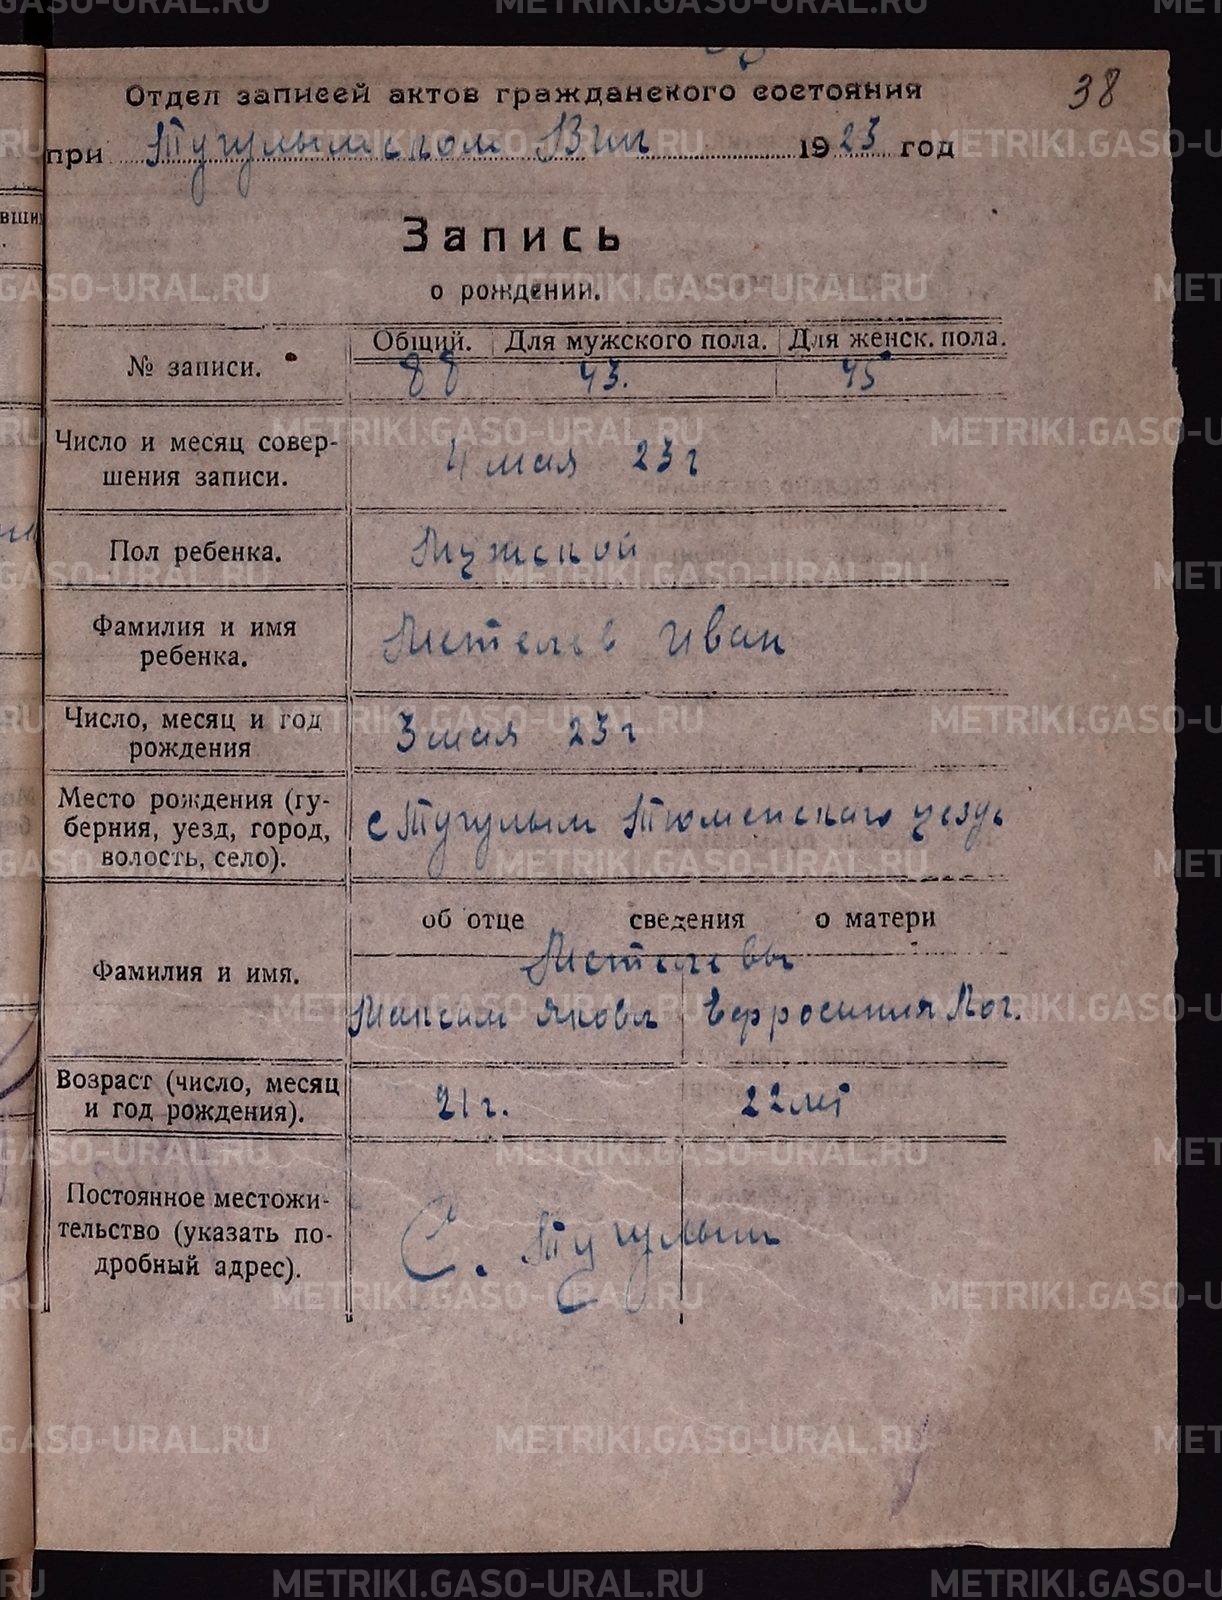 38
Отдел записей актов гражданского состояния
при Тугулымском Вик 1923 год
Запись
о рождении.
№ записи.
Общий. Для мужского пола. Для женск. пола.
88 43. 45
Число и месяц совер-
шения записи.
4 мая 23 г
Пол ребенка.
Мужской
Фамилия и имя
ребенка.
Метелев Иван
Число, месяц и год
рождения
3 мая 23 г
Место рождения (гу-
берния, уезд, город,
волость, село).
с Тугулым Тюменского уезда
об отце сведения о матери
Фамилия и имя.
Метелевы
Максим Яковл Ефросиния
Возраст (число, месяц
и год рождения).
21 г. 22 лет
Постоянное местожи-
тельство (указать по-
дробный адрес).
С. Тугулым
METRIKI.GASO-URAL.RU